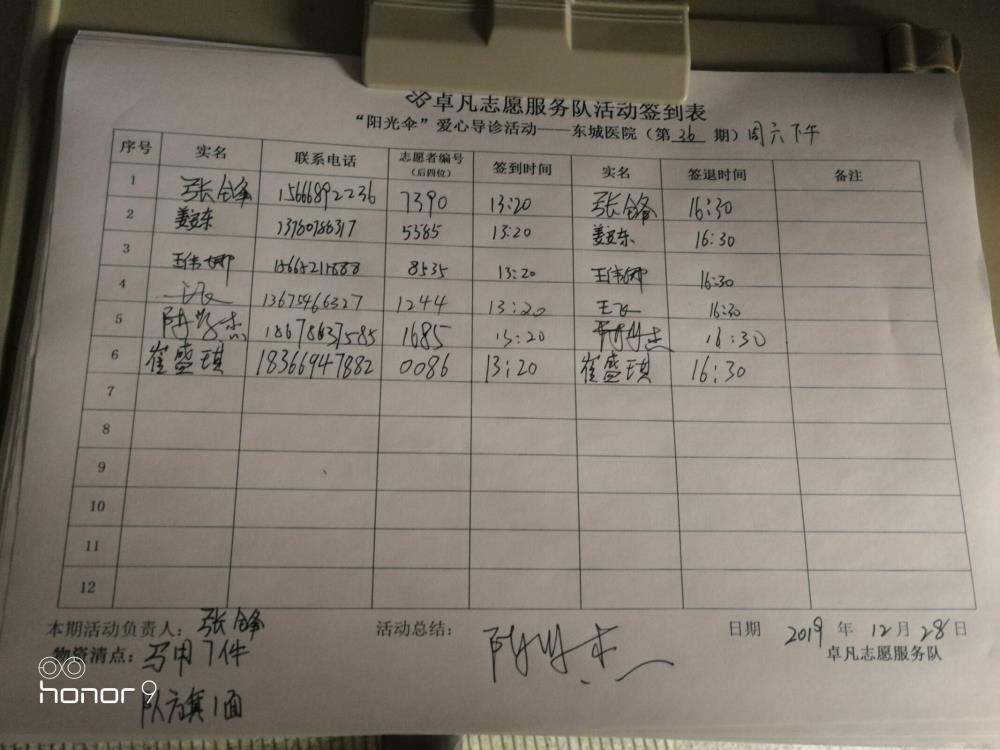 卓凡志愿服务队活动签到表
“阳光伞”爱心导诊活动——东城医院（第 36 期）周六下午
序号 实名 联系电话 志愿者编号（后四位） 签到时间 实名 签退时间 备注
1 张锋 15666892236 7390 13:20 张锋 16:30
2 13780786317 5585 13:20 16:30
3 王伟娜 8535 13:20 王伟娜 16:30
4 王飞 13675466327 1244 13:20 王飞 16:30
5 18678637585 1685 13:20 16:30
6 崔盛琪 18366947882 0086 13:20 崔盛琪 16:30
7
8
9
10
11
12
本期活动负责人：张锋 活动总结： 日期 2019 年 12 月 28 日
物资清点：马甲7件 卓凡志愿服务队
队旗1面
honor 9